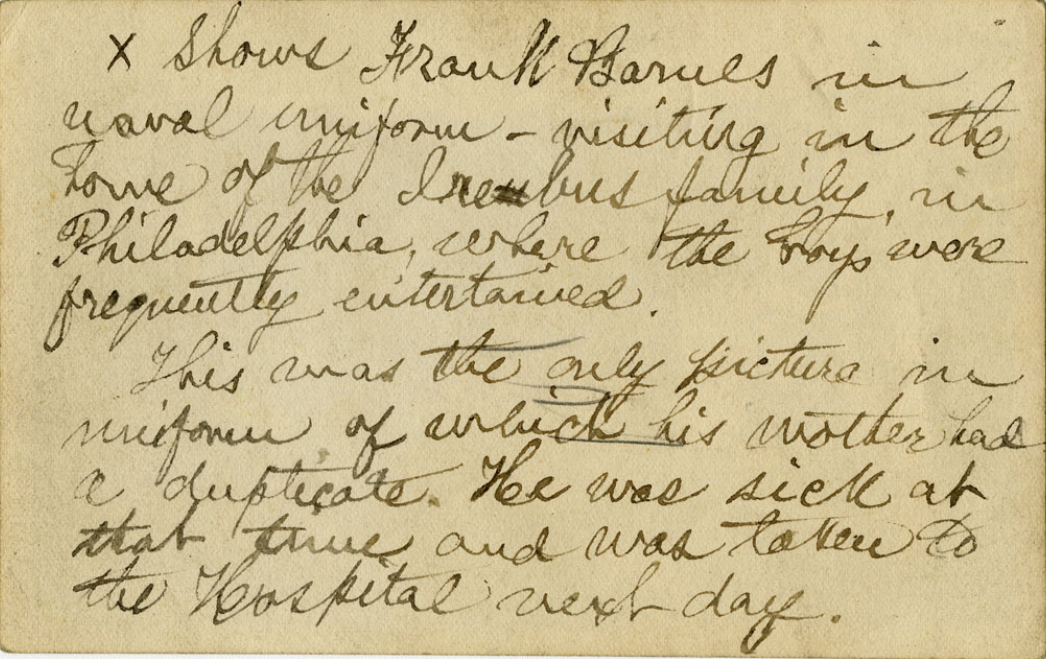 x Shows Frank Barnes in
naval uniform - visiting in the
home of the family, in
Philadelphia, where the boys were
frequently entertained.
This was the only picture in
uniform of which his mother had
a duplicate. He was sick at
that time and was taken to
the Hospital next day.